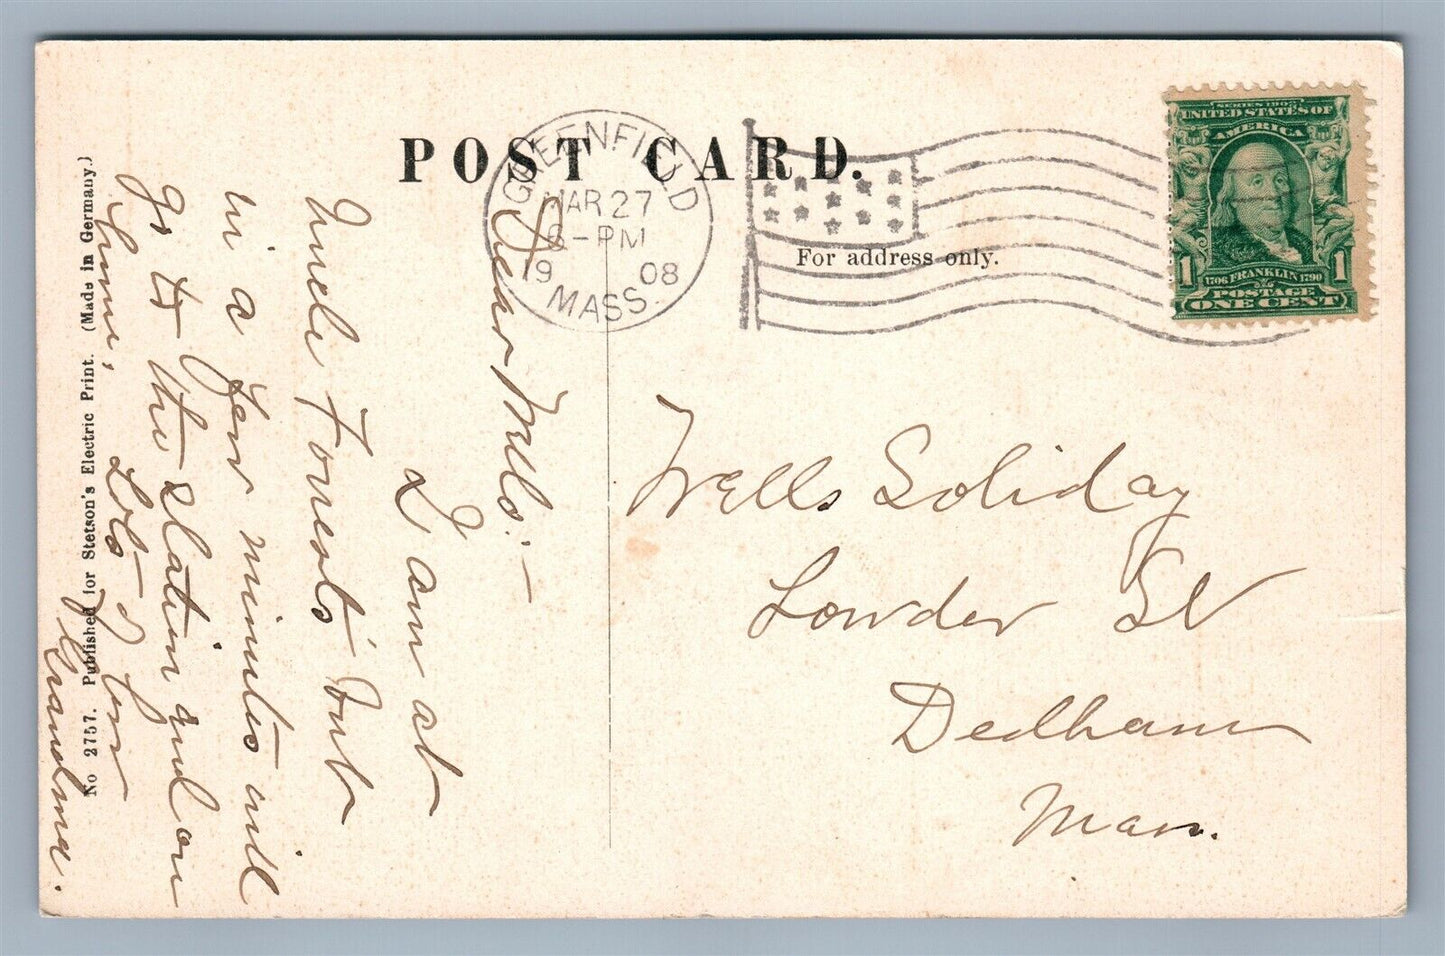 POST CARD.
GREENFIELD
MAR 27
6-PM
1908
MASS.
For address only.
SERIES 1902
UNITED STATES OF
AMERICA
1 1706 FRANKLIN 1790 1
POSTAGE
ONE CENT
Wells Holiday
Lowder St
Dedham
Mass.
Dear Wells:-
I am at
Uncle Forest's but
in a few minutes will
go to the station and on
home,
Lots of love
Grandma.
No 2757. Published for Stetson's Electric Print. (Made in Germany.)